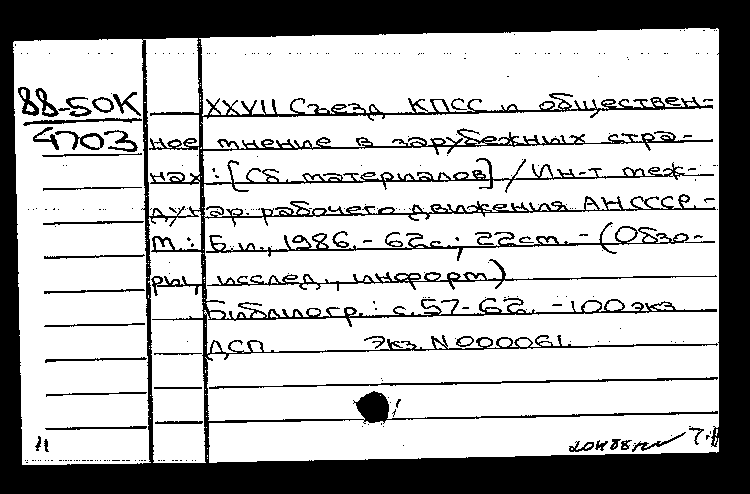 88-50К
4703
XXVII Съезд КПСС и обществен-
ное мнение в зарубежных стра-
нах: [Сб. материалов] / Ин-т меж-
дунар. рабочего движения АН СССР. -
М.: Б.и., 1986. - 62с.; 22см. - (Обзо-
ры, исслед., информ)
Библиогр.: с. 57-62. - 100 экз
ДСП. Экз. N 000061.